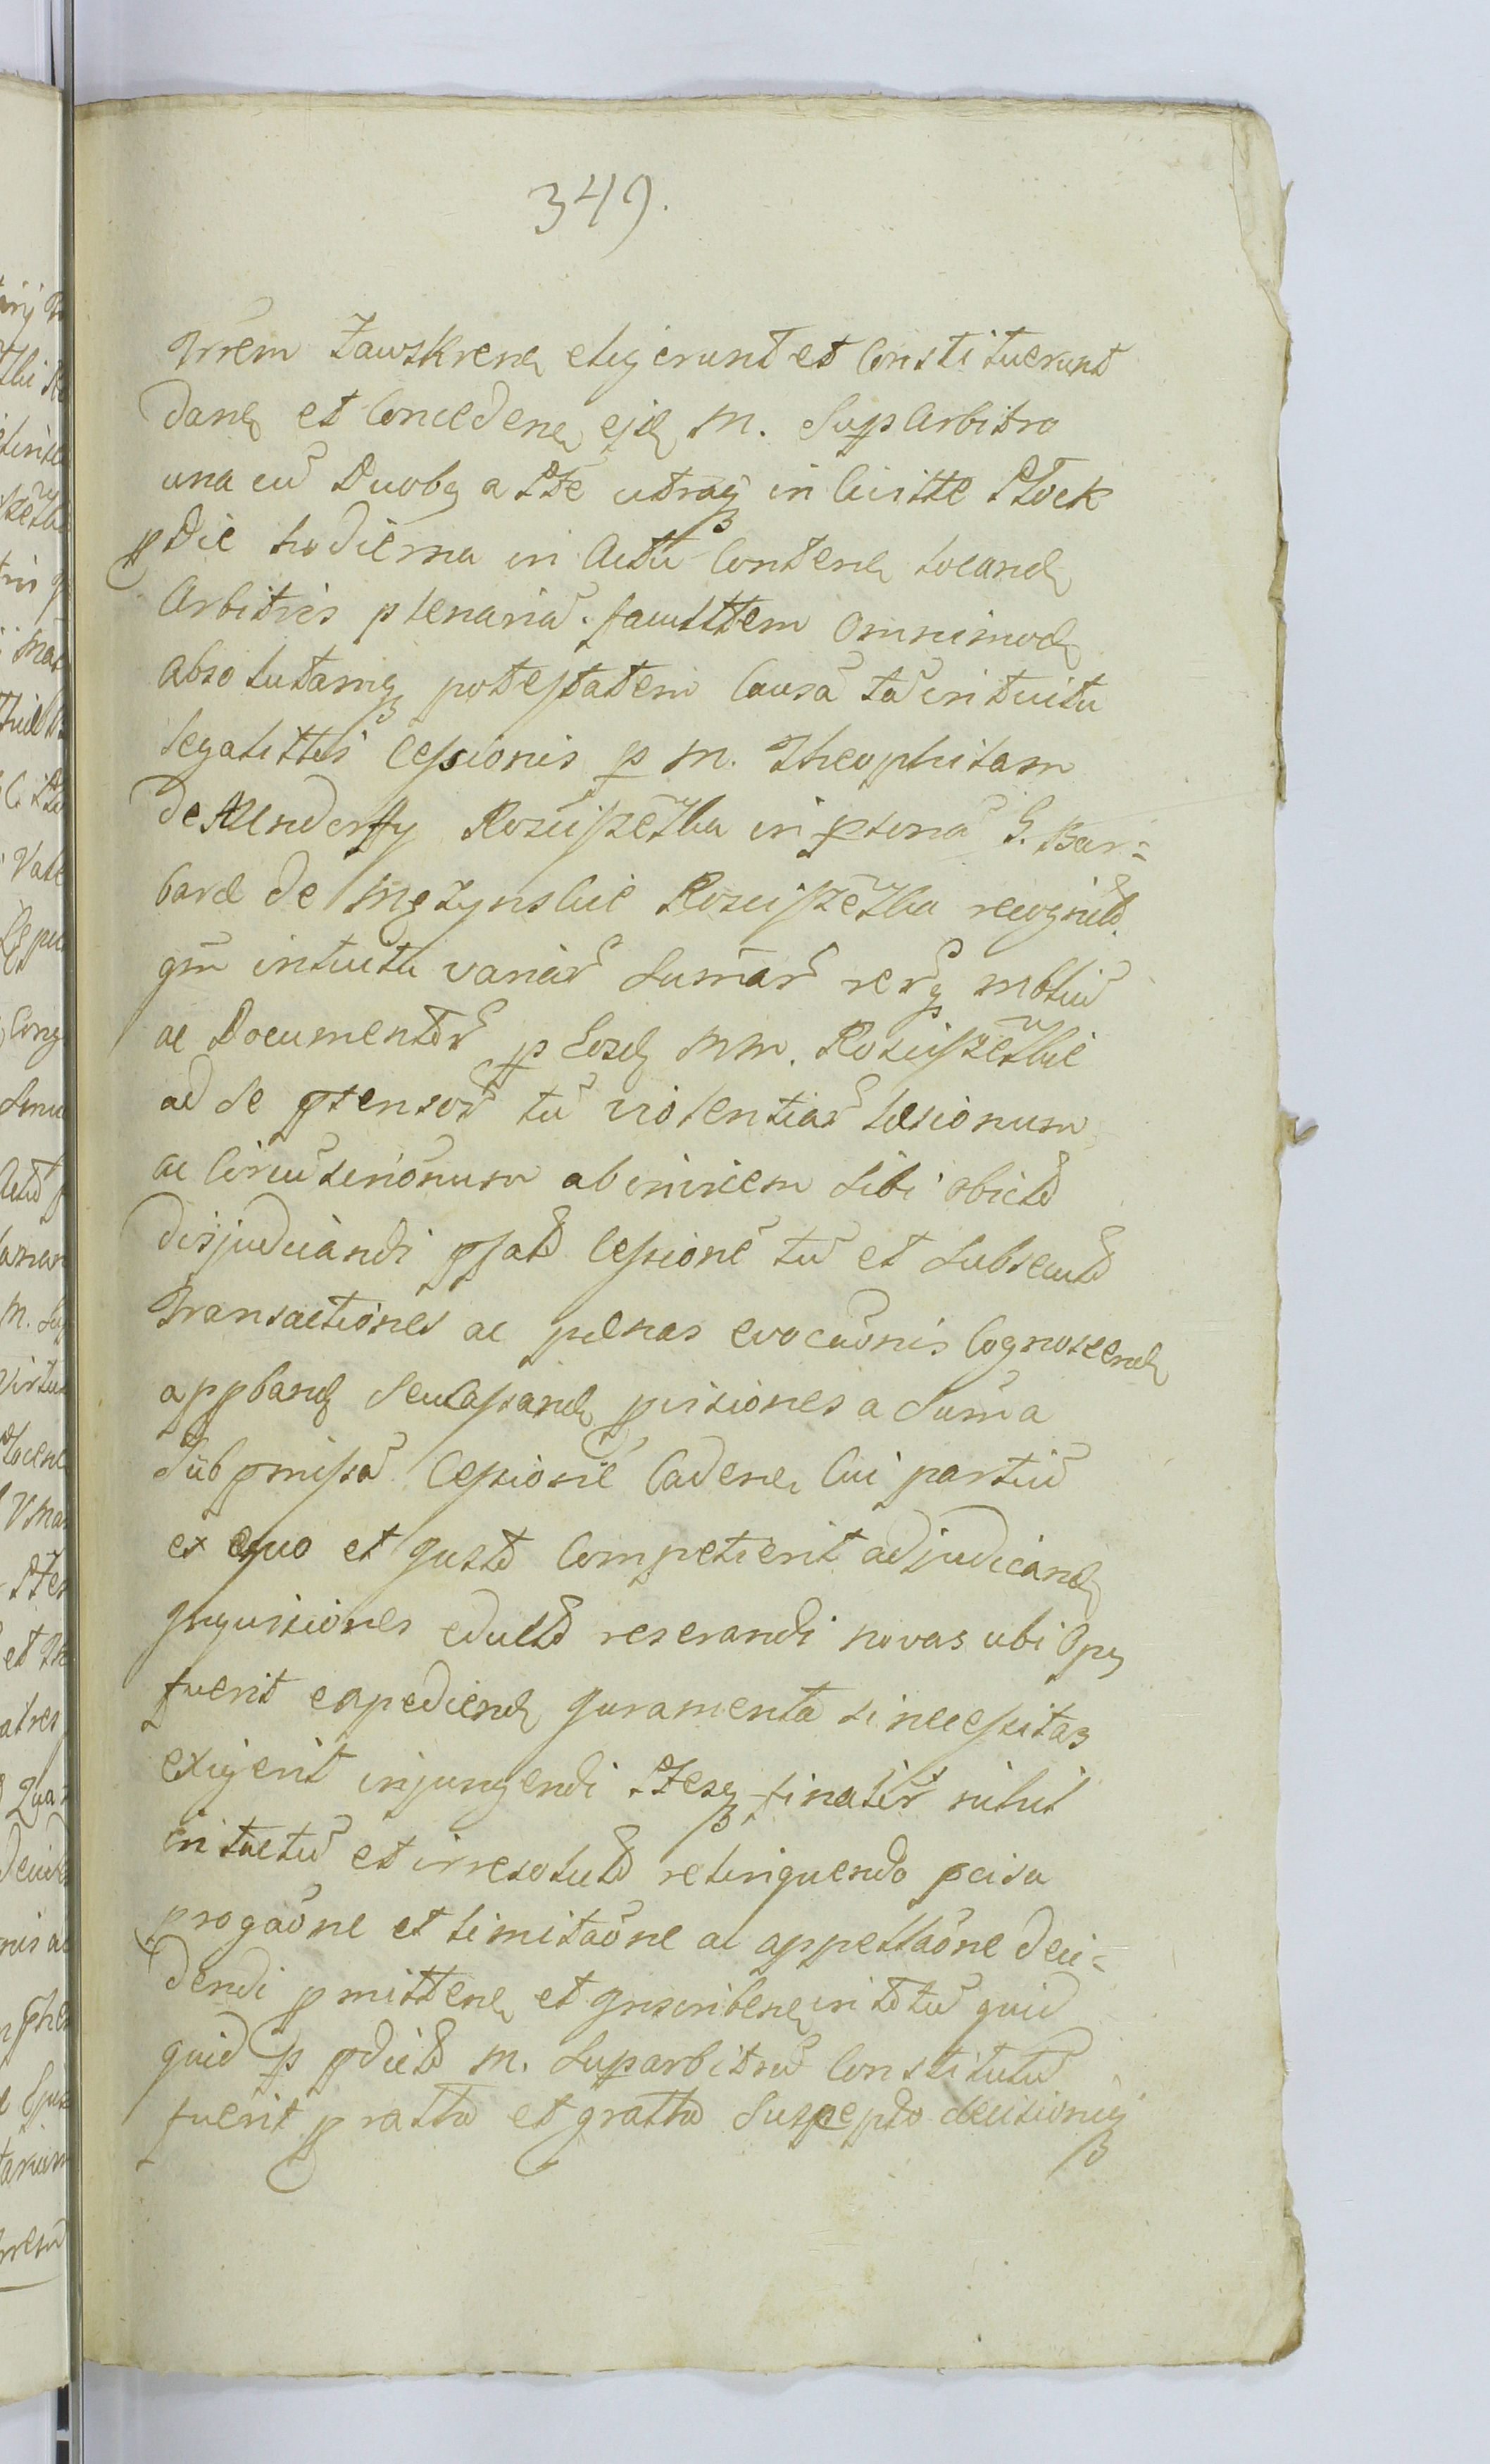 349.
Vrrem Zawskren elegerunt et Constituerunt
dand et Conceden ejd M. Suparbitro
una cu Duobq a Pte utraq in Civitte Plock
p Die hodierna in Actu Conten locand
Arbitris plenaria facultttem omnimod
absolutamq potestatem Causa ta intuitu
legalittis Cessionis p M. Theophilam
de Allnderffy Kosciszezka in psona G. Bar=
bare de Mezynskie Kosciszezka recognitt
qm intuitu variar sumar rerq mbliu
ac Documentor p Eosd MM. Kosciszezkie
ad se ptensor tu violentiar lesionum
ac Circu abinvicem sibi obictt
disjudicandi pfatt Cessione tu et subsecutt
Transactiones ac penas evocaonis Cognoscend
appband seu Cassand pvisiones a Suma
sub pmissa Cessione Caden Cui partiu
ex equo et justo Competierit adjudicand
Inquisiones eductt reserandi novas ubi Opq
fuerit expediend Juramenta si necessitas
exigerit injungendi Ptesq finalir nihil
intactu et irresolutt relinquendo pcisa
progaone et limitaone ac appellaone deci=
dendi pmitten et Inscriben in totu quid
quid p pdictt M. Suparbitru Constitutu
fuerit p ratto et gratto suscepto decisioniq